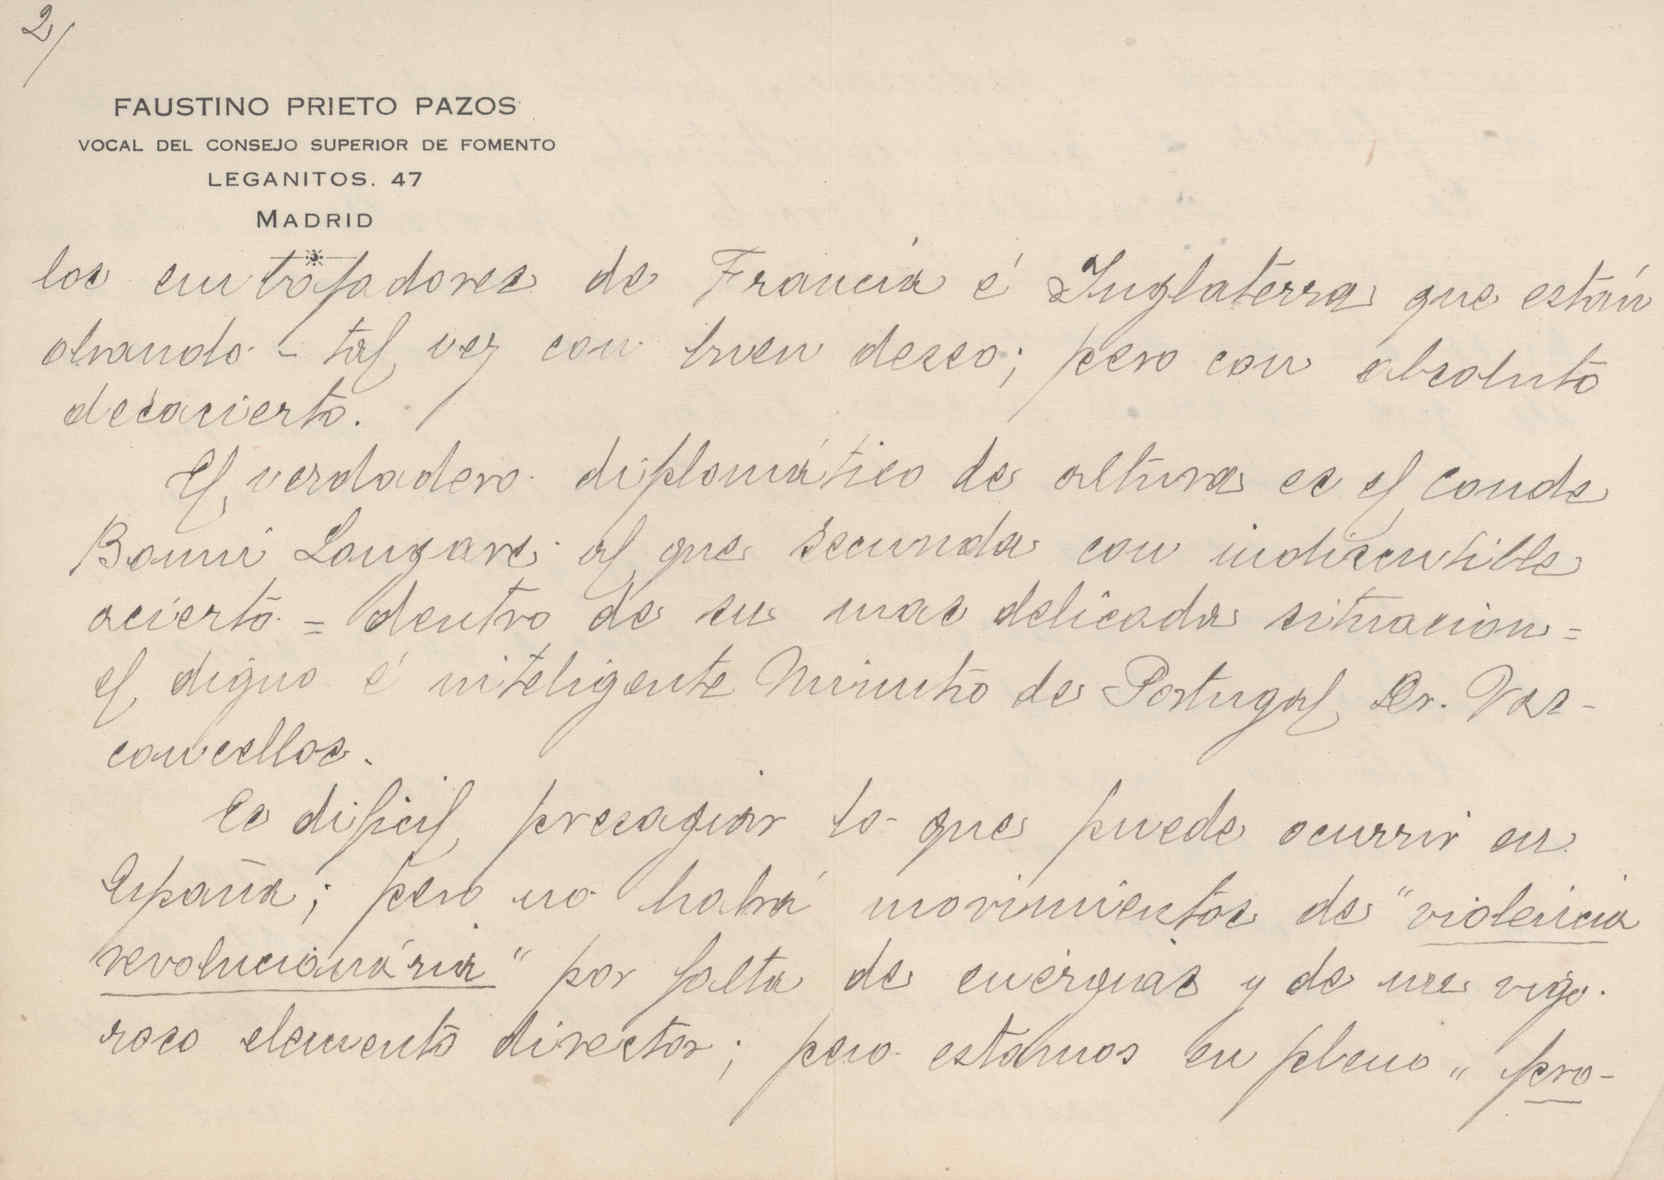 2/
FAUSTINO PRIETO PAZOS
VOCAL DEL CONSEJO SUPERIOR DE FOMENTO
LEGANITOS. 47
MADRID
los embajadores de Francia é Inglaterra que están
obrando - tal vez con buen deseo; pero con absoluto
desacierto.
El verdadero diplomático de altura es el conde
Bonni Longare al que secunda con indiscutible
acierto = dentro de su mas delicada situacion =
el digno é inteligente Ministro de Portugal Sr. Vas-
concellos.
Es dificil presagiar lo que puede ocurrir en
España; pero no habrá movimientos de "violencia
revolucionária" por falta de energias y de un vigo-
roso elemento director; pero estamos en pleno "pro-